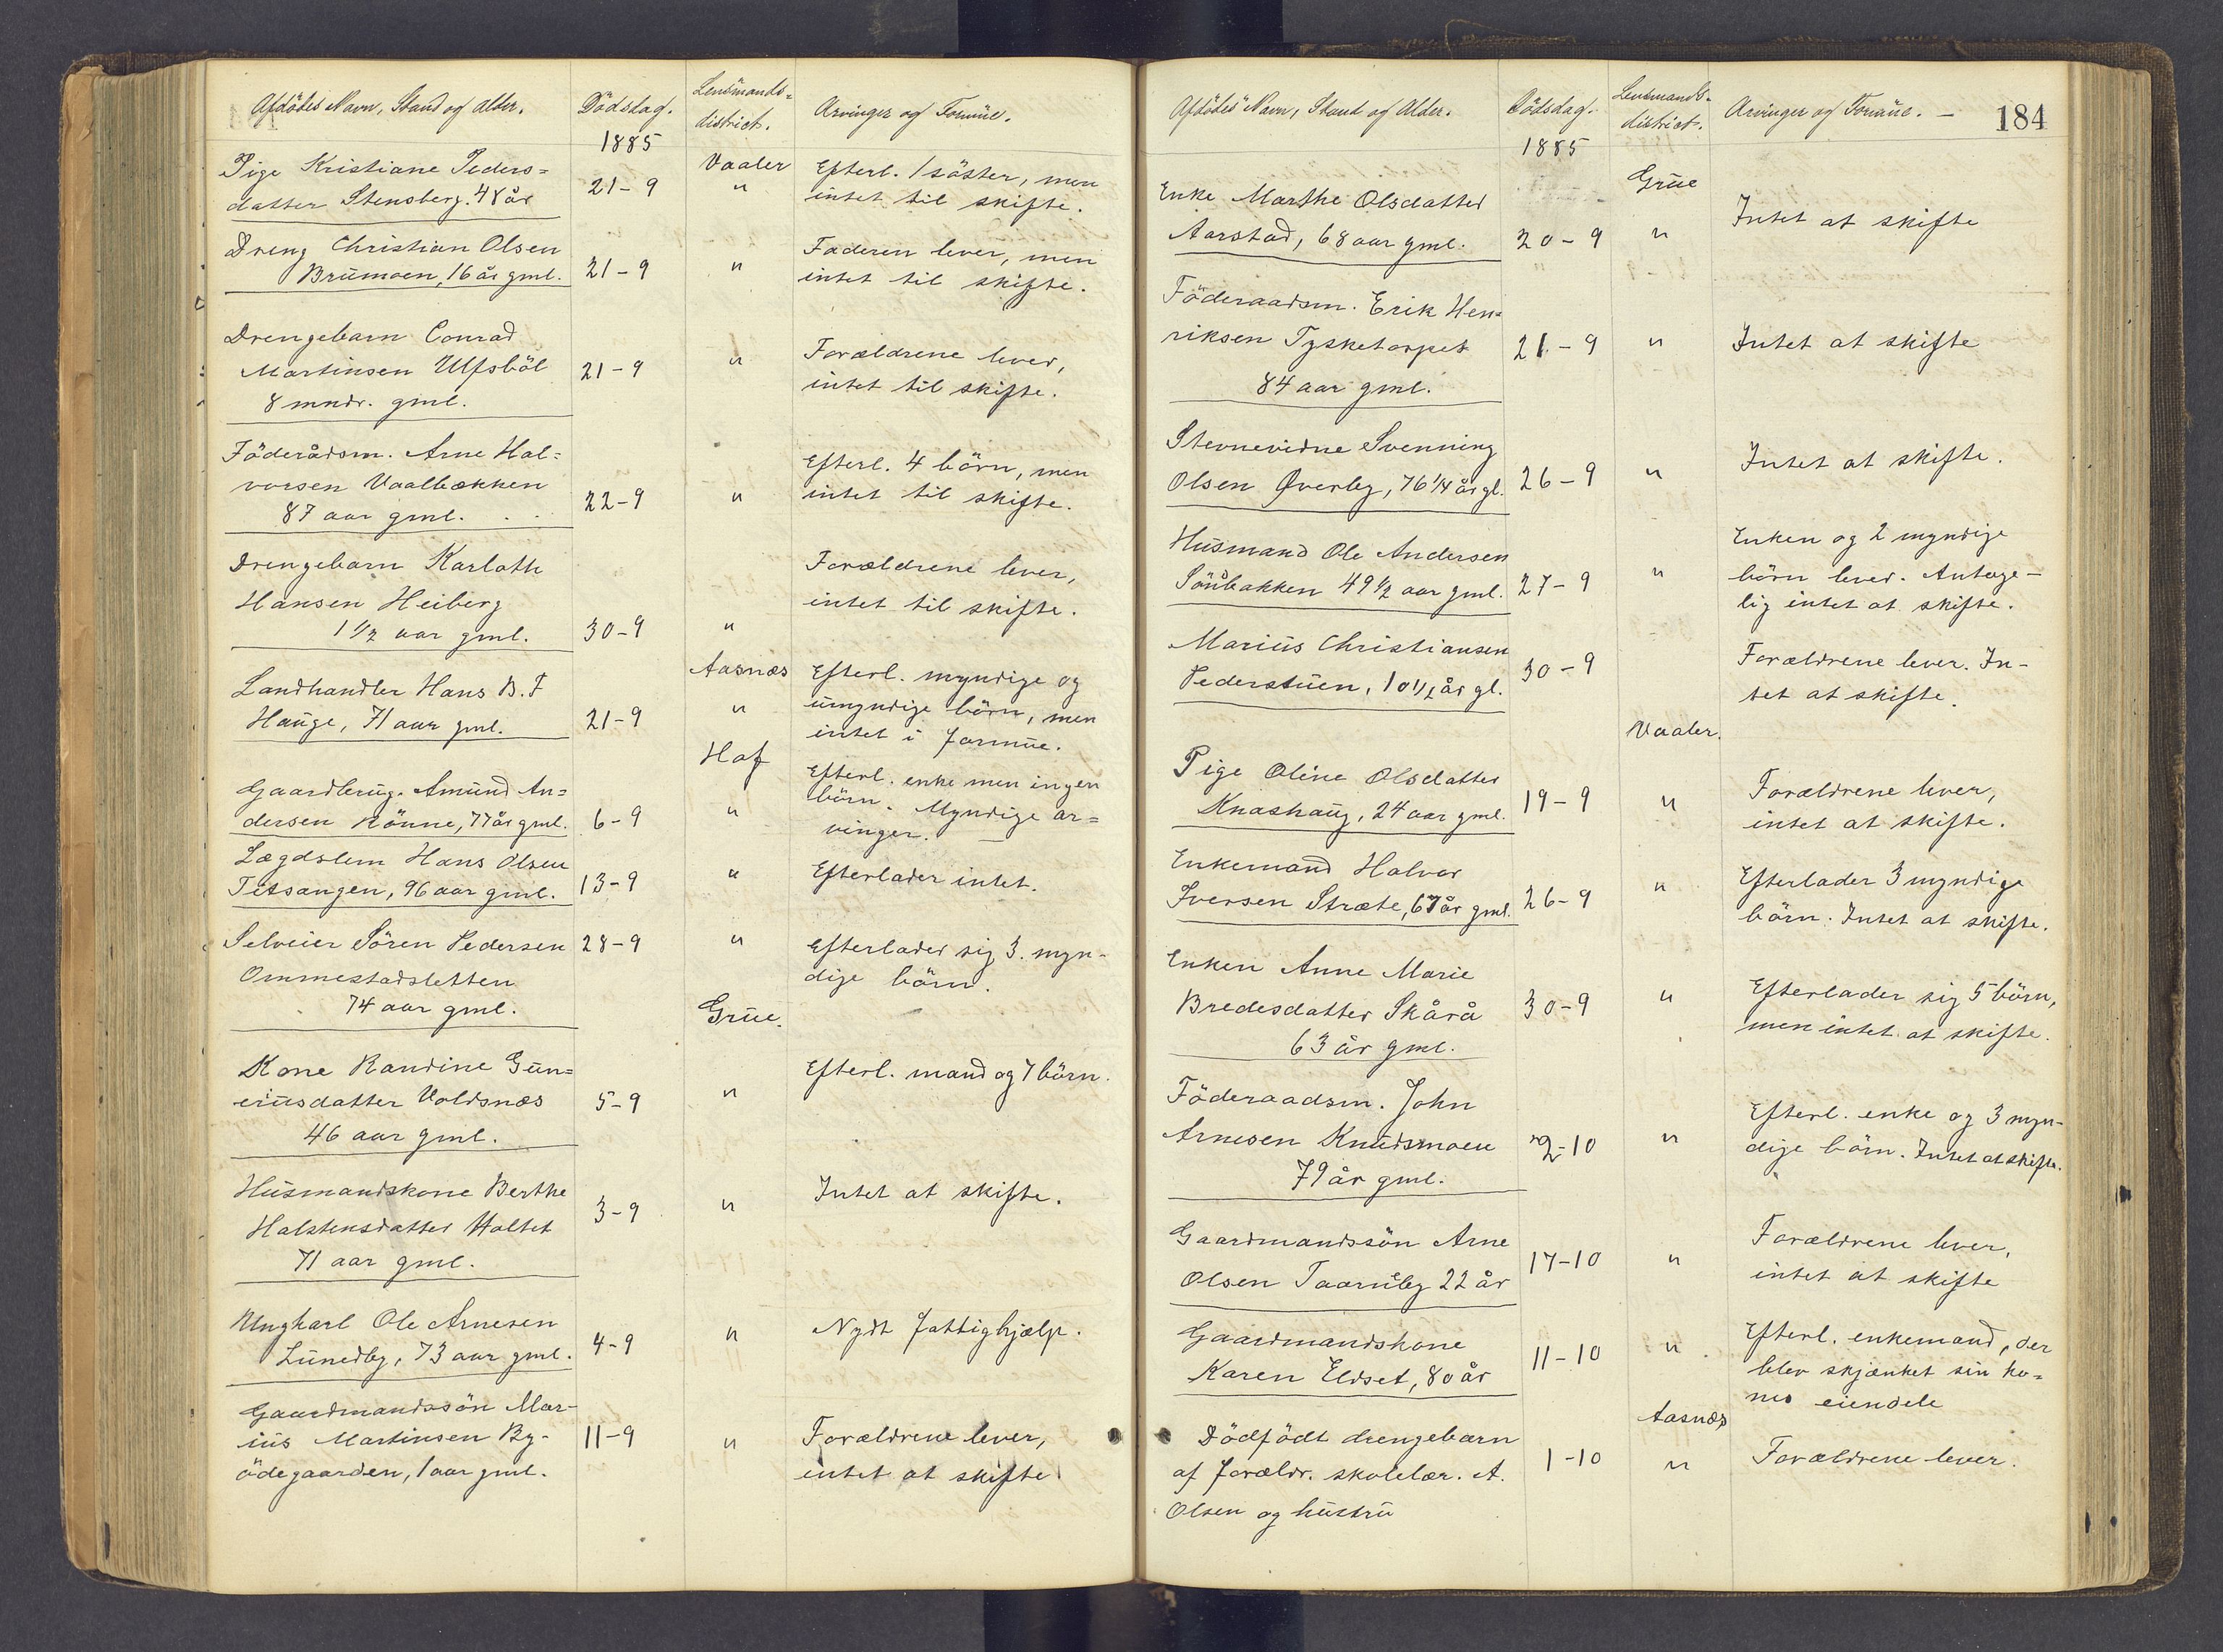 Afdödes Navn, Stand og Alder.
Dödsdag.
Lensmands=
district.
Arvinger og Formüe.
1885
Pige Kristiane Peders=
datter Stensberg. 48 år
21-9
Vaaler
"
Efterl. 1 söster, men
intet til skifte.
Dreng Christian Olsen
Brümoen, 16 år gml.
21-9
"
Faderen lever, men
intet til skifte.
Drengebarn Conrad
Martinsen Ulfsböl
8 mndr. gml.
21-9
"
Forældrene lever,
intet til skifte.
Föderådsm. Arne Hal=
vorsen Vaalbækken
87 aar gml.
22-9
"
Efterl. 4 börn, men
intet til skifte.
Drengebarn Karloth
Hansen Heiberg
1 1/2 aar gml.
30-9
"
Forældrene lever,
intet til skifte.
Landhandler Hans B. F
Haüge, 71 aar gml.
21-9
Aasnæs
"
Efterl. myndige og
ümyndige börn, men
intet i formüe.
Gaardbrüg. Amünd An=
dersen Rönne, 77 år gml.
6-9
Hof
"
Efterl. enke men ingen
börn. Myndige ar=
vinger.
Lægdslem Hans Olsen
Titsangen, 96 aar gml.
13-9
"
Efterlader intet.
Selveier Sören Pedersen
Ommestadsletten
74 aar gml.
28-9
"
Efterlader sig 3. myn-
dige börn.
Grüe.
Kone Randine Gün=
eriüsdatter Voldsnæs
46 aar gml.
5-9
"
Efterl. mand og 7 börn.
Hüsmandskone Berthe
Halstensdatter Holtet
71 aar gml.
3-9
"
Intet at skifte.
Ungkarl Ole Arnesen
Lünedby, 73 aar gml.
4-9
"
Nydt fattighjælp.
Gaardmandssön Mar-
iüs Martinsen By-
ödegaarden, 1 aar gml.
11-9
"
Forældrene lever,
intet at skifte
Afdödes Navn, Stand og Alder.
Dödsdag.
Lensmands-
district.
Arvinger og Formüe. -
184
1885
Grüe
Enke Marthe Olsdatter
Aarstad, 68 aar gml.
20-9
"
Intet at skifte
Föderaadsm. Erik Hen=
riksen Tysketorpet
84 aar gml.
21-9
"
Intet at skifte
Stevnevidne Svenning
Olsen Øverby, 76 1/4 år gl.
26-9
"
Intet at skifte.
Hüsmand Ole Andersen
Sönbakken 49 1/2 aar gml.
27-9
"
Enken og 2 myndige
börn lever. Antage-
lig intet at skifte.
Mariüs Christiansen
Pederstüen, 10 1/2 år gl.
30-9
Forældrene lever. In-
tet at skifte.
Vaaler.
Pige Oline Olsdatter
Knashaüg, 24 aar gml.
19-9
"
Forældrene lever,
intet at skifte.
Enkemand Halvor
Iversen Stræte, 67 år gml.
26-9
"
Efterlader 3 myndige
börn. Intet at skifte.
Enken Anne Marie
Bredesdatter Skårå
63 år gml.
30-9
"
Efterlader sig 5 börn,
men intet at skifte.
Föderaadsm. John
Arnesen Knüdsmoen
79 år gml.
2-10
"
Efterl. enke og 3 myn-
dige börn. Intet at skifte.
Gaardmandssön Arne
Olsen Taarnby 22 år
17-10
"
Forældrene lever,
intet at skifte
Gaardmandskone
Karen Eldset, 80 år
11-10
"
Efterl. enkemand, der
blev skjænket sin ko=
nes eiendele
Aasnæs
Dödfödt drengebarn
af forældr. skolelær. A.
Olsen og hüstrü
1-10
"
Forældrene lever.